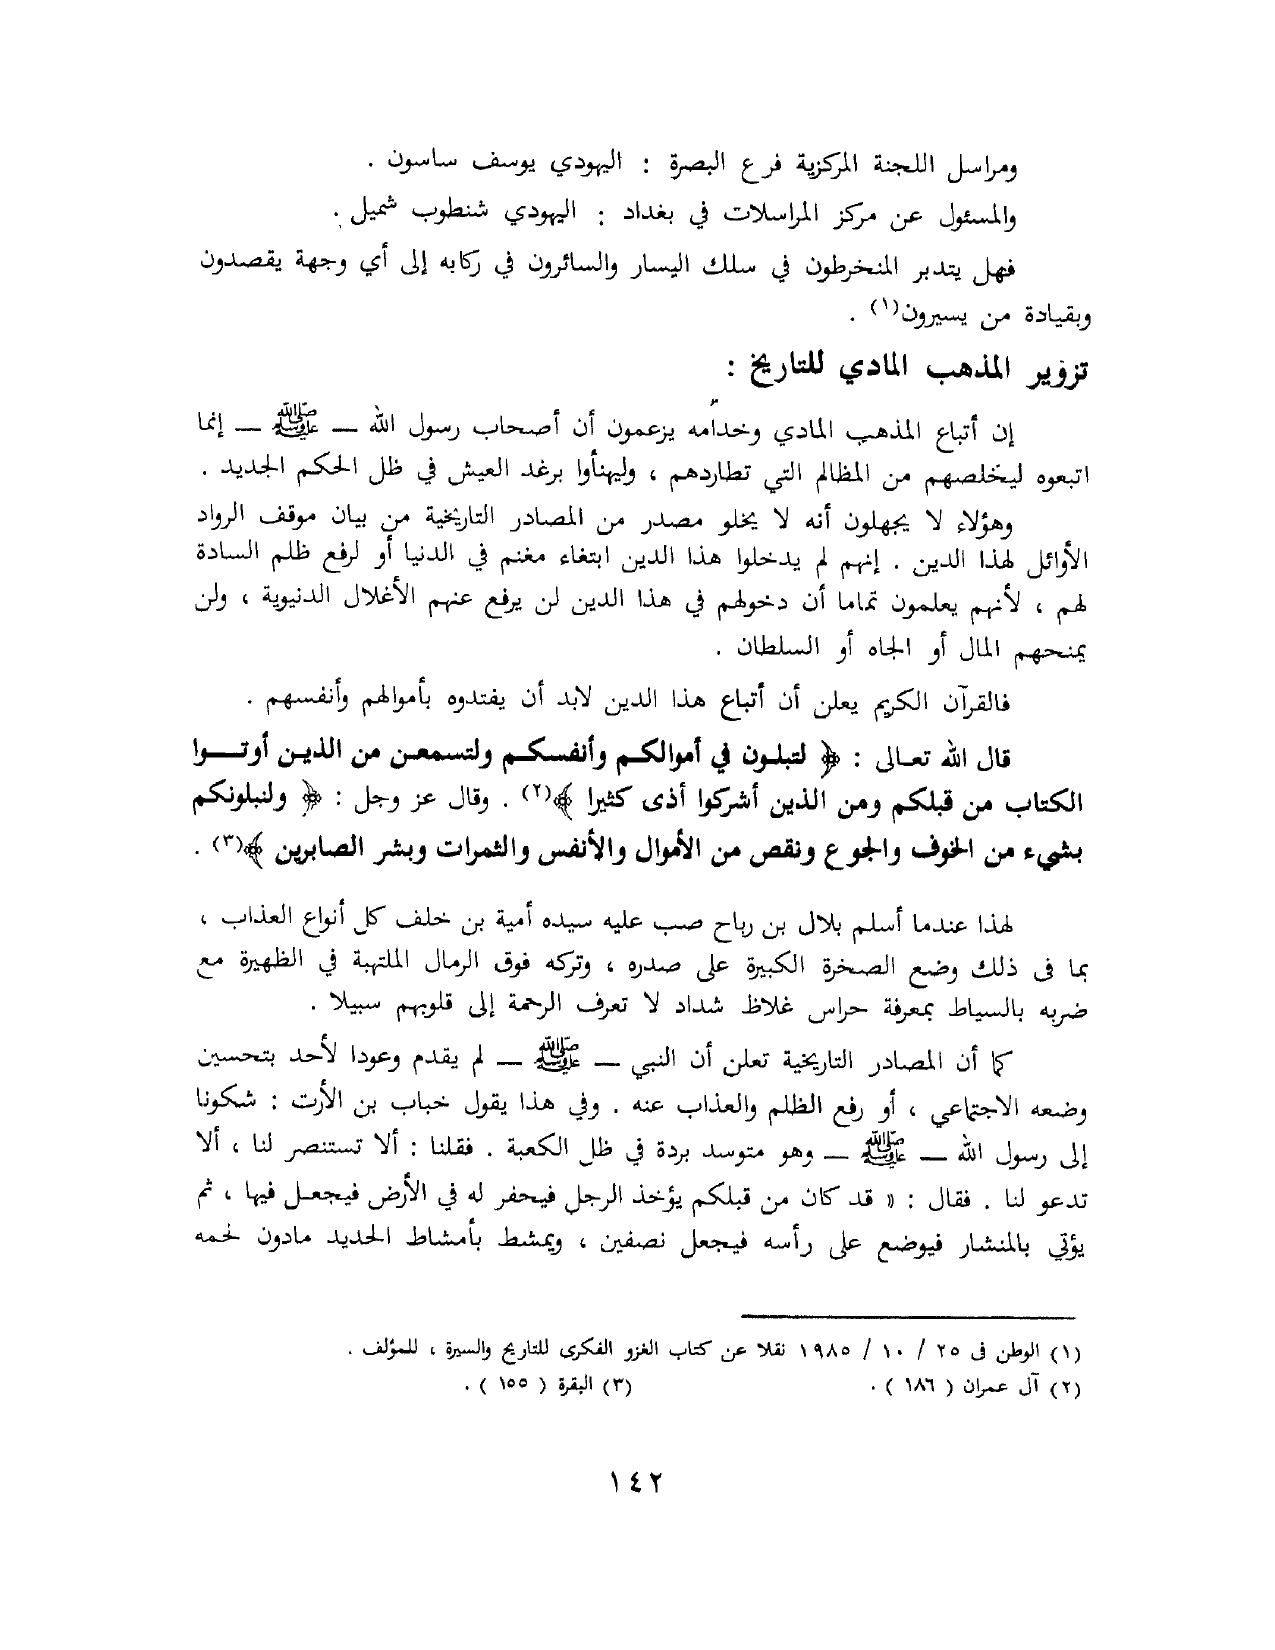 ومراسل اللجنة المركزية فرع البصرة : اليهودي يوسف ساسون .
والمسئول عن مركز المراسلات في بغداد : اليهودي شنطوب شميل .
فهل يتدبر المنخرطون في سلك اليسار والسائرون في ركابه إلى أي وجهة يقصدون
وبقيادة من يسيرون(١) .
تزوير المذهب المادي للتاريخ :
إن أتباع المذهب المادي وخدّامه يزعمون أن أصحاب رسول الله — ﷺ — إنما
اتبعوه ليخلصهم من المظالم التي تطاردهم ، وليهنأوا برغد العيش في ظل الحكم الجديد .
وهؤلاء لا يجهلون أنه لا يخلو مصدر من المصادر التاريخية من بيان موقف الرواد
الأوائل لهذا الدين . إنهم لم يدخلوا هذا الدين ابتغاء مغنم في الدنيا أو لرفع ظلم السادة
لهم ، لأنهم يعلمون تماما أن دخولهم في هذا الدين لن يرفع عنهم الأغلال الدنيوية ، ولن
يمنحهم المال أو الجاه أو السلطان .
فالقرآن الكريم يعلن أن أتباع هذا الدين لابد أن يفتدوه بأموالهم وأنفسهم .
قال الله تعالى : ﴿ لتبلون في أموالكم وأنفسكم ولتسمعن من الذين أوتوا
الكتاب من قبلكم ومن الذين أشركوا أذى كثيرا ﴾(٢) . وقال عز وجل : ﴿ ولنبلونكم
بشيء من الخوف والجوع ونقص من الأموال والأنفس والثمرات وبشر الصابرين ﴾(٣) .
لهذا عندما أسلم بلال بن رباح صب عليه سيده أمية بن خلف كل أنواع العذاب ،
بما فى ذلك وضع الصخرة الكبيرة على صدره ، وتركه فوق الرمال الملتهبة في الظهيرة مع
ضربه بالسياط بمعرفة حراس غلاظ شداد لا تعرف الرحمة إلى قلوبهم سبيلا .
كما أن المصادر التاريخية تعلن أن النبي — ﷺ — لم يقدم وعودا لأحد بتحسين
وضعه الاجتماعي ، أو رفع الظلم والعذاب عنه . وفي هذا يقول خباب بن الأرت : شكونا
إلى رسول الله — ﷺ — وهو متوسد بردة في ظل الكعبة . فقلنا : ألا تستنصر لنا ، ألا
تدعو لنا . فقال : « قد كان من قبلكم يؤخذ الرجل فيحفر له في الأرض فيجعل فيها ، ثم
يؤتي بالمنشار فيوضع على رأسه فيجعل نصفين ، ويمشط بأمشاط الحديد مادون لحمه
(١) الوطن فى ٢٥ / ١٠ / ١٩٨٥ نقلا عن كتاب الغزو الفكرى للتاريخ والسيرة ، للمؤلف .
(٢) آل عمران ( ١٨٦ ) . (٣) البقرة ( ١٥٥ ) .
١٤٢